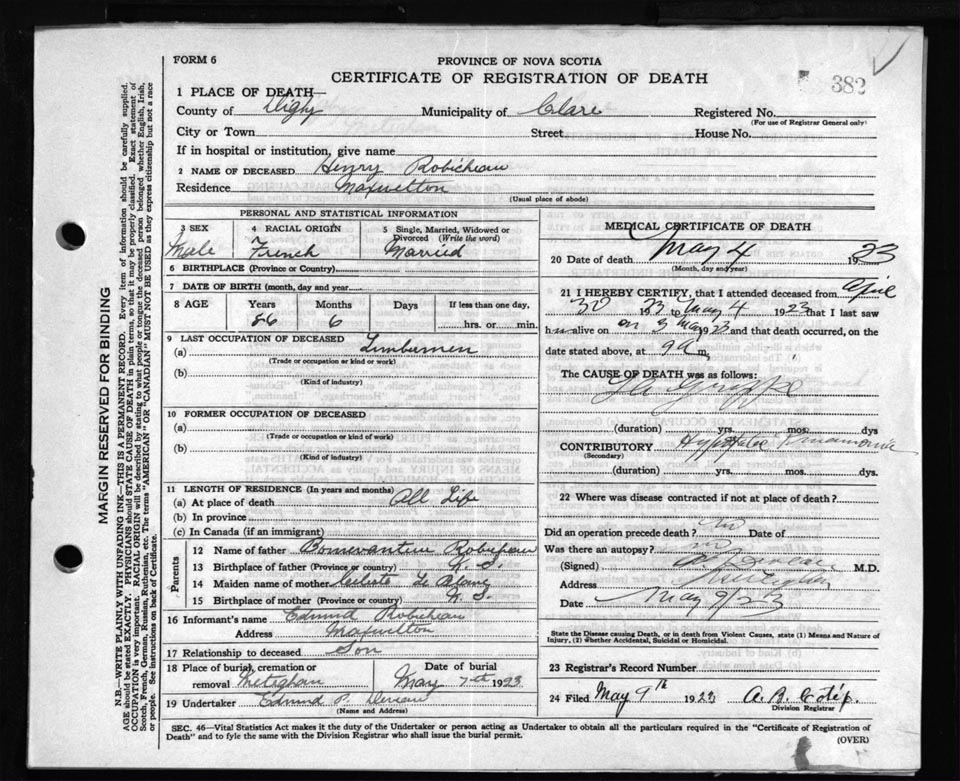 FORM 6
PROVINCE OF NOVA SCOTIA
CERTIFICATE OF REGISTRATION OF DEATH
382
1 PLACE OF DEATH—
County of Digby Municipality of Clare Registered No.
(For use of Registrar General only)
City or Town Street House No.
If in hospital or institution, give name
2 NAME OF DECEASED Henry Robicheau
Residence Maxwellton
(Usual place of abode)
PERSONAL AND STATISTICAL INFORMATION
3 SEX 4 RACIAL ORIGIN 5 Single, Married, Widowed or Divorced (Write the word)
Male French Married
6 BIRTHPLACE (Province or Country)
7 DATE OF BIRTH (month, day and year
8 AGE Years Months Days If less than one day,
56 6 hrs. or min.
9 LAST OCCUPATION OF DECEASED
(a) Lumbermen
(Trade or occupation or kind or work)
(b)
(Kind of industry)
10 FORMER OCCUPATION OF DECEASED
(a)
(Trade or occupation or kind of work)
(b)
(Kind of industry)
11 LENGTH OF RESIDENCE (In years and months)
(a) At place of death All Life
(b) In province
(c) In Canada (if an immigrant)
Parents
12 Name of father Robicheau
13 Birthplace of father (Province or country) N. S.
14 Maiden name of mother Celeste
15 Birthplace of mother (Province or country) N. S.
16 Informant's name Edmund Robicheau
Address Maxwellton
17 Relationship to deceased Son
18 Place of burial, cremation or removal Meteghan Date of burial May 7th 1923
19 Undertaker Edmund P.
(Name and Address)
MEDICAL CERTIFICATE OF DEATH
20 Date of death May 4 1923
(Month, day and year)
21 I HEREBY CERTIFY, that I attended deceased from April
30 23 to May 4 1923 that I last saw
h alive on 3 May 1923 and that death occurred, on the
date stated above, at 9 a m.
The CAUSE OF DEATH was as follows:
La Grippe
(duration) yrs. mos. dys
CONTRIBUTORY
(Secondary)
(duration) yrs. mos. dys.
22 Where was disease contracted if not at place of death?
Did an operation precede death? no Date of
Was there an autopsy? no
(Signed) M.D.
Address Meteghan
Date May 9/23
State the Disease causing Death, or in death from Violent Causes, state (1) Means and Nature of
Injury, (2) whether Accidental, Suicidal or Homicidal.
23 Registrar's Record Number
24 Filed May 9th 1923
Division Registrar
SEC. 46—Vital Statistics Act makes it the duty of the Undertaker or person acting as Undertaker to obtain all the particulars required in the "Certificate of Registration of
Death" and to fyle the same with the Division Registrar who shall issue the burial permit.
(OVER)
MARGIN RESERVED FOR BINDING
N.B.—WRITE PLAINLY WITH UNFADING INK—THIS IS A PERMANENT RECORD. Every item of information should be carefully supplied.
AGE should be stated EXACTLY. PHYSICIANS should STATE CAUSE OF DEATH in plain terms, so that it may be properly classified. Exact statement of
OCCUPATION is very important. RACIAL ORIGIN will be described by stating to what people or tongue the deceased person belonged whether English, Irish,
Scotch, French, German, Russian, Ruthenian, etc. The terms "AMERICAN" OR "CANADIAN" MUST NOT BE USED as they express citizenship but not a race
or people. See instructions on back of Certificate.